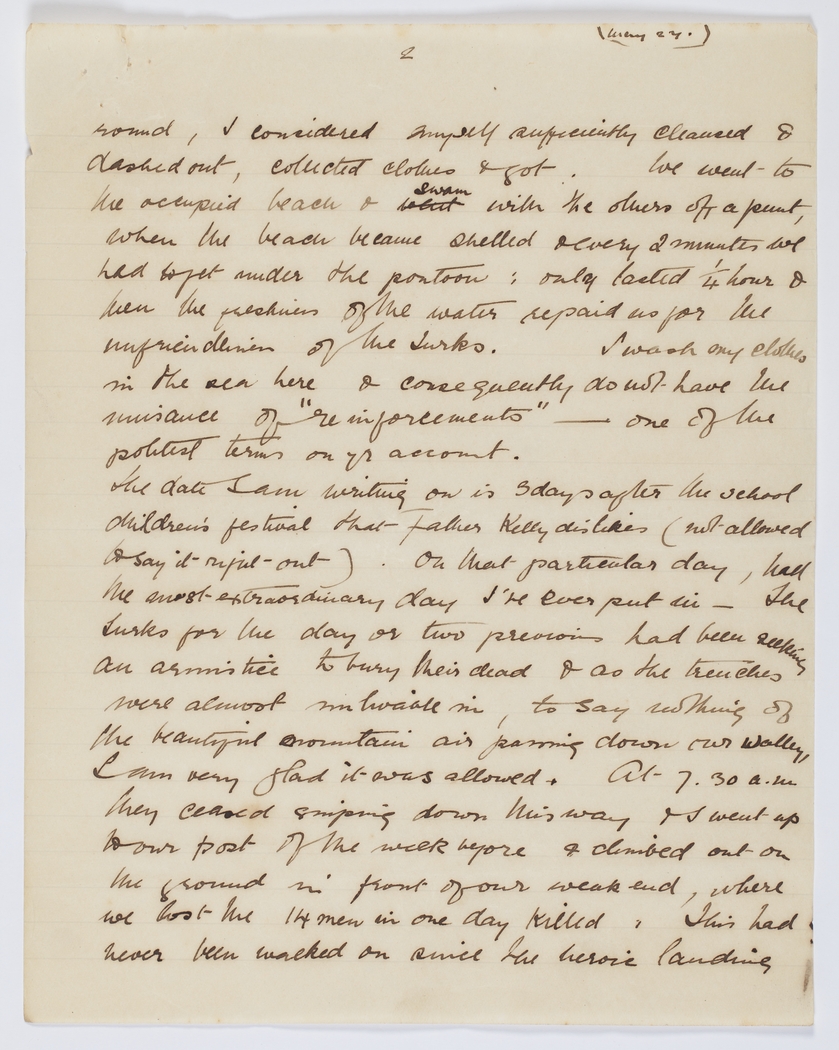 (May 27.)
2
round, I considered myself sufficiently cleansed &
dashed out, collected clothes & got. We went to
the occupied beach & went swam with the others off a punt,
when the beach became shelled & every 2 minutes we
had to get under the pontoon: only lasted 1/4 hour &
then the freshness of the water repaid us for the
unfriendliness of the Turks. I wash my clothes
in the sea here & consequently do not have the
nuisance of "reinforcements" — one of the
politest terms on yr account.
The date I am writing on is 3 days after the school
children's festival that Father Kelly dislikes (not allowed
to say it right out). On that particular day, had
the most extraordinary day I've ever put in — The
Turks for the day or two previous had been seeking
an armistice to bury their dead & as the trenches
were almost unlivable in, to say nothing of
the beautiful mountain air passing down our valley,
I am very glad it was allowed. At 7.30 a.m
they ceased sniping down this way & I went up
to our post of the week before & climbed out on
the ground in front of our weak end, where
we lost the 14 men in one day killed. This had
never been walked on since the heroic landing